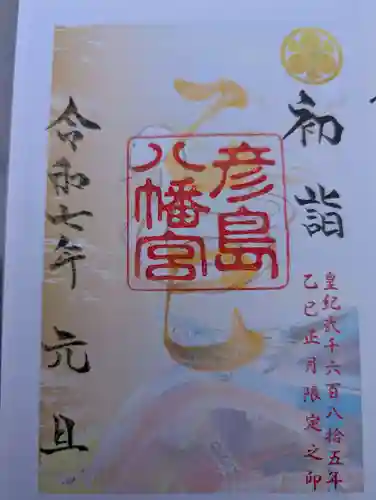 初詣
皇紀弐千六百八拾五年
乙巳正月限定之印
彦島
八幡宮
乙巳
令和七年 元旦